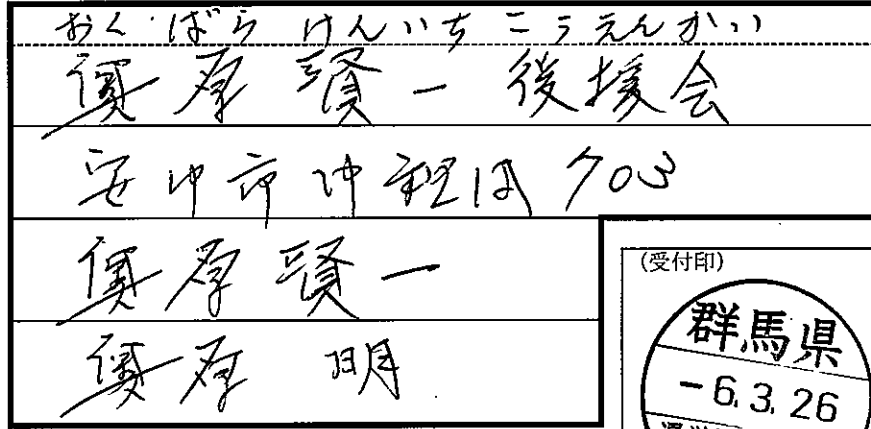 おくばらけんいちこうえんかい
奥原賢一後援会
安中市 703
奥原賢一
奥原 明
(受付印)
群馬県
-6.3.26